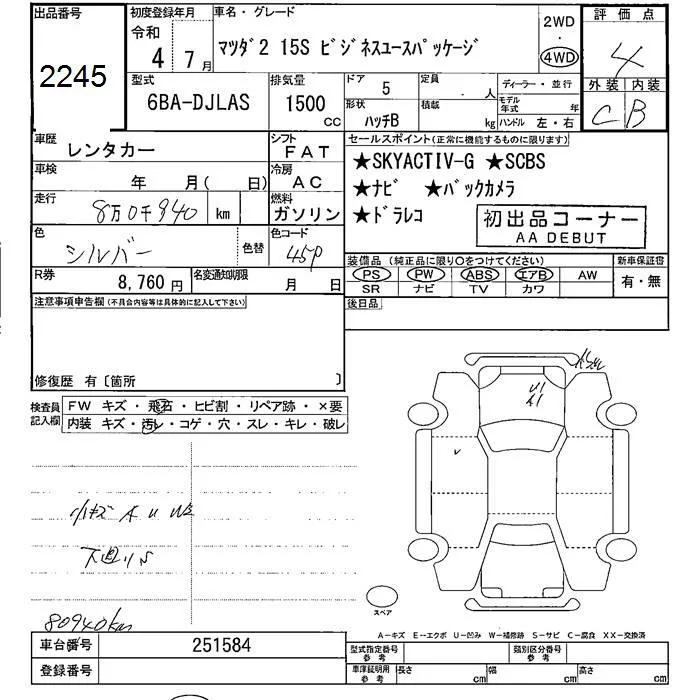 出品番号
2245
初度登録年月
令和
4年 7月
車名・グレード
マツダ2 15S ビジネスユースパッケージ
2WD
・
4WD
評価点
4
外装 内装
C B
型式
6BA-DJLAS
排気量
1500
CC
ドア
5
定員
・ 人
形状
ハッチB
積載
kg
ディーラー・並行
モデル年式 年
ハンドル 左・右
車歴
レンタカー
シフト
FAT
車検
年 月( 日)
冷房
AC
走行
8万0千940 km
燃料
ガソリン
色
シルバー
色替
色コード
45P
R券
8,760円
名変通知期限
月 日
セールスポイント(正常に機能するものに限ります)
★SKYACTIV-G ★SCBS
★ナビ ★バックカメラ
★ドラレコ
初出品コーナー
AA DEBUT
装備品(純正品に限り〇をつけてください)
新車保証書
PS PW ABS エアB AW
SR ナビ TV カワ
有・無
注意事項申告欄(不具合内容等は具体的に記入して下さい)
後日品
修復歴 有〔箇所 〕
検査員記入欄
FW キズ・飛石・ヒビ割・リペア跡・×要
内装 キズ・汚レ・コゲ・穴・スレ・キレ・破レ
小キズ A U W2
下廻りS
80940km
U1
A1
スペア
A－キズ E－エクボ U－凹み W－補修跡 S－サビ C－腐食 XX－交換済
車台番号
251584
登録番号
型式指定番号
参考
類別区分番号
参考
車庫証明用
参考
長さ cm
幅 cm
高さ cm